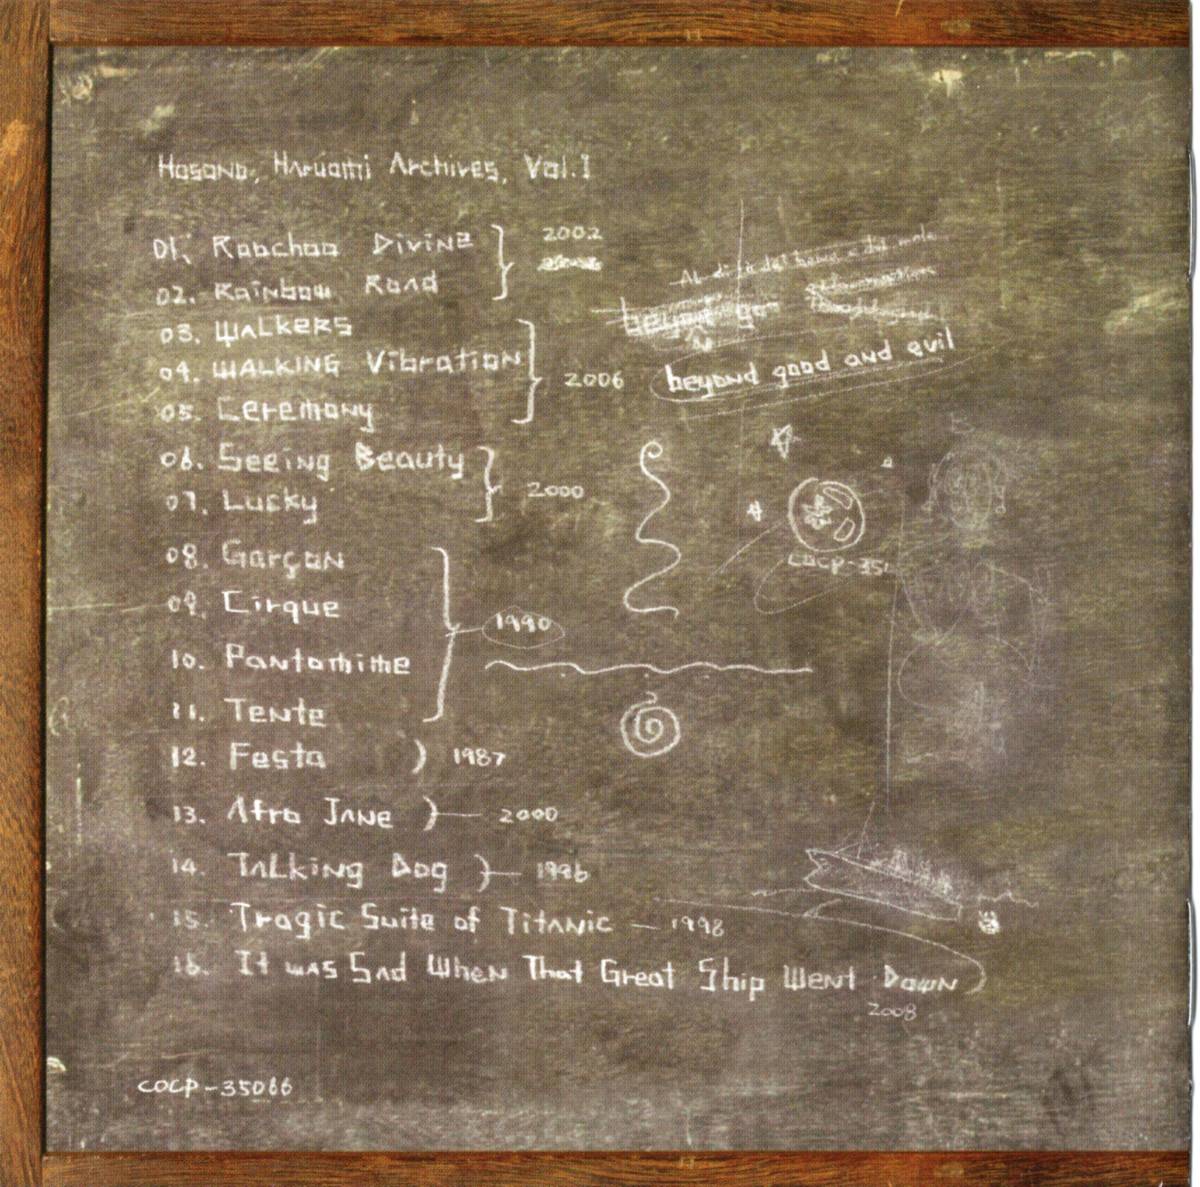 Hosono, Haruomi Archives, Vol.1
01. Roochoo Divine
02. Rainbow Road
2002
03. Walkers
04. Walking Vibration
05. Ceremony
2006
Al di là del bene e del male
beyond go
beyond good and evil
06. Seeing Beauty
07. Lucky
2000
08. Garçon
09. Cirque
10. Pantomime
11. Tente
1990
COCP-351
12. Festa 1987
13. Afro Jane 2000
14. Talking Dog 1996
15. Tragic Suite of Titanic — 1998
16. It was Sad When That Great Ship Went Down
2008
COCP-35066